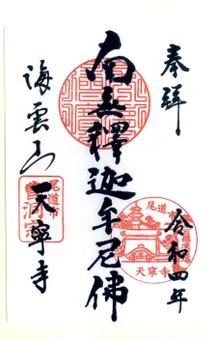 奉拝
令和四年
南無釋迦牟尼佛
海雲山
天寧寺
尾道市
尾道
天寧寺